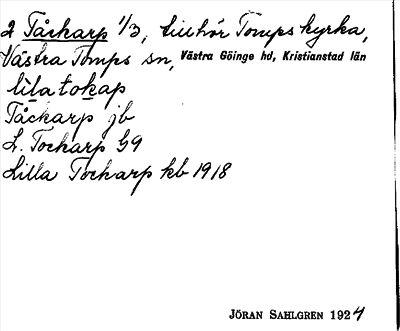 2 Tåckarp 1/3, tillhör Tomps kyrka,
Västra Tomps sn, Västra Göinge hd, Kristianstad län
lilatokap
Tåckarp jb
L. Tockarp G9
Lilla Tockarp kb 1918
JÖRAN SAHLGREN 1924